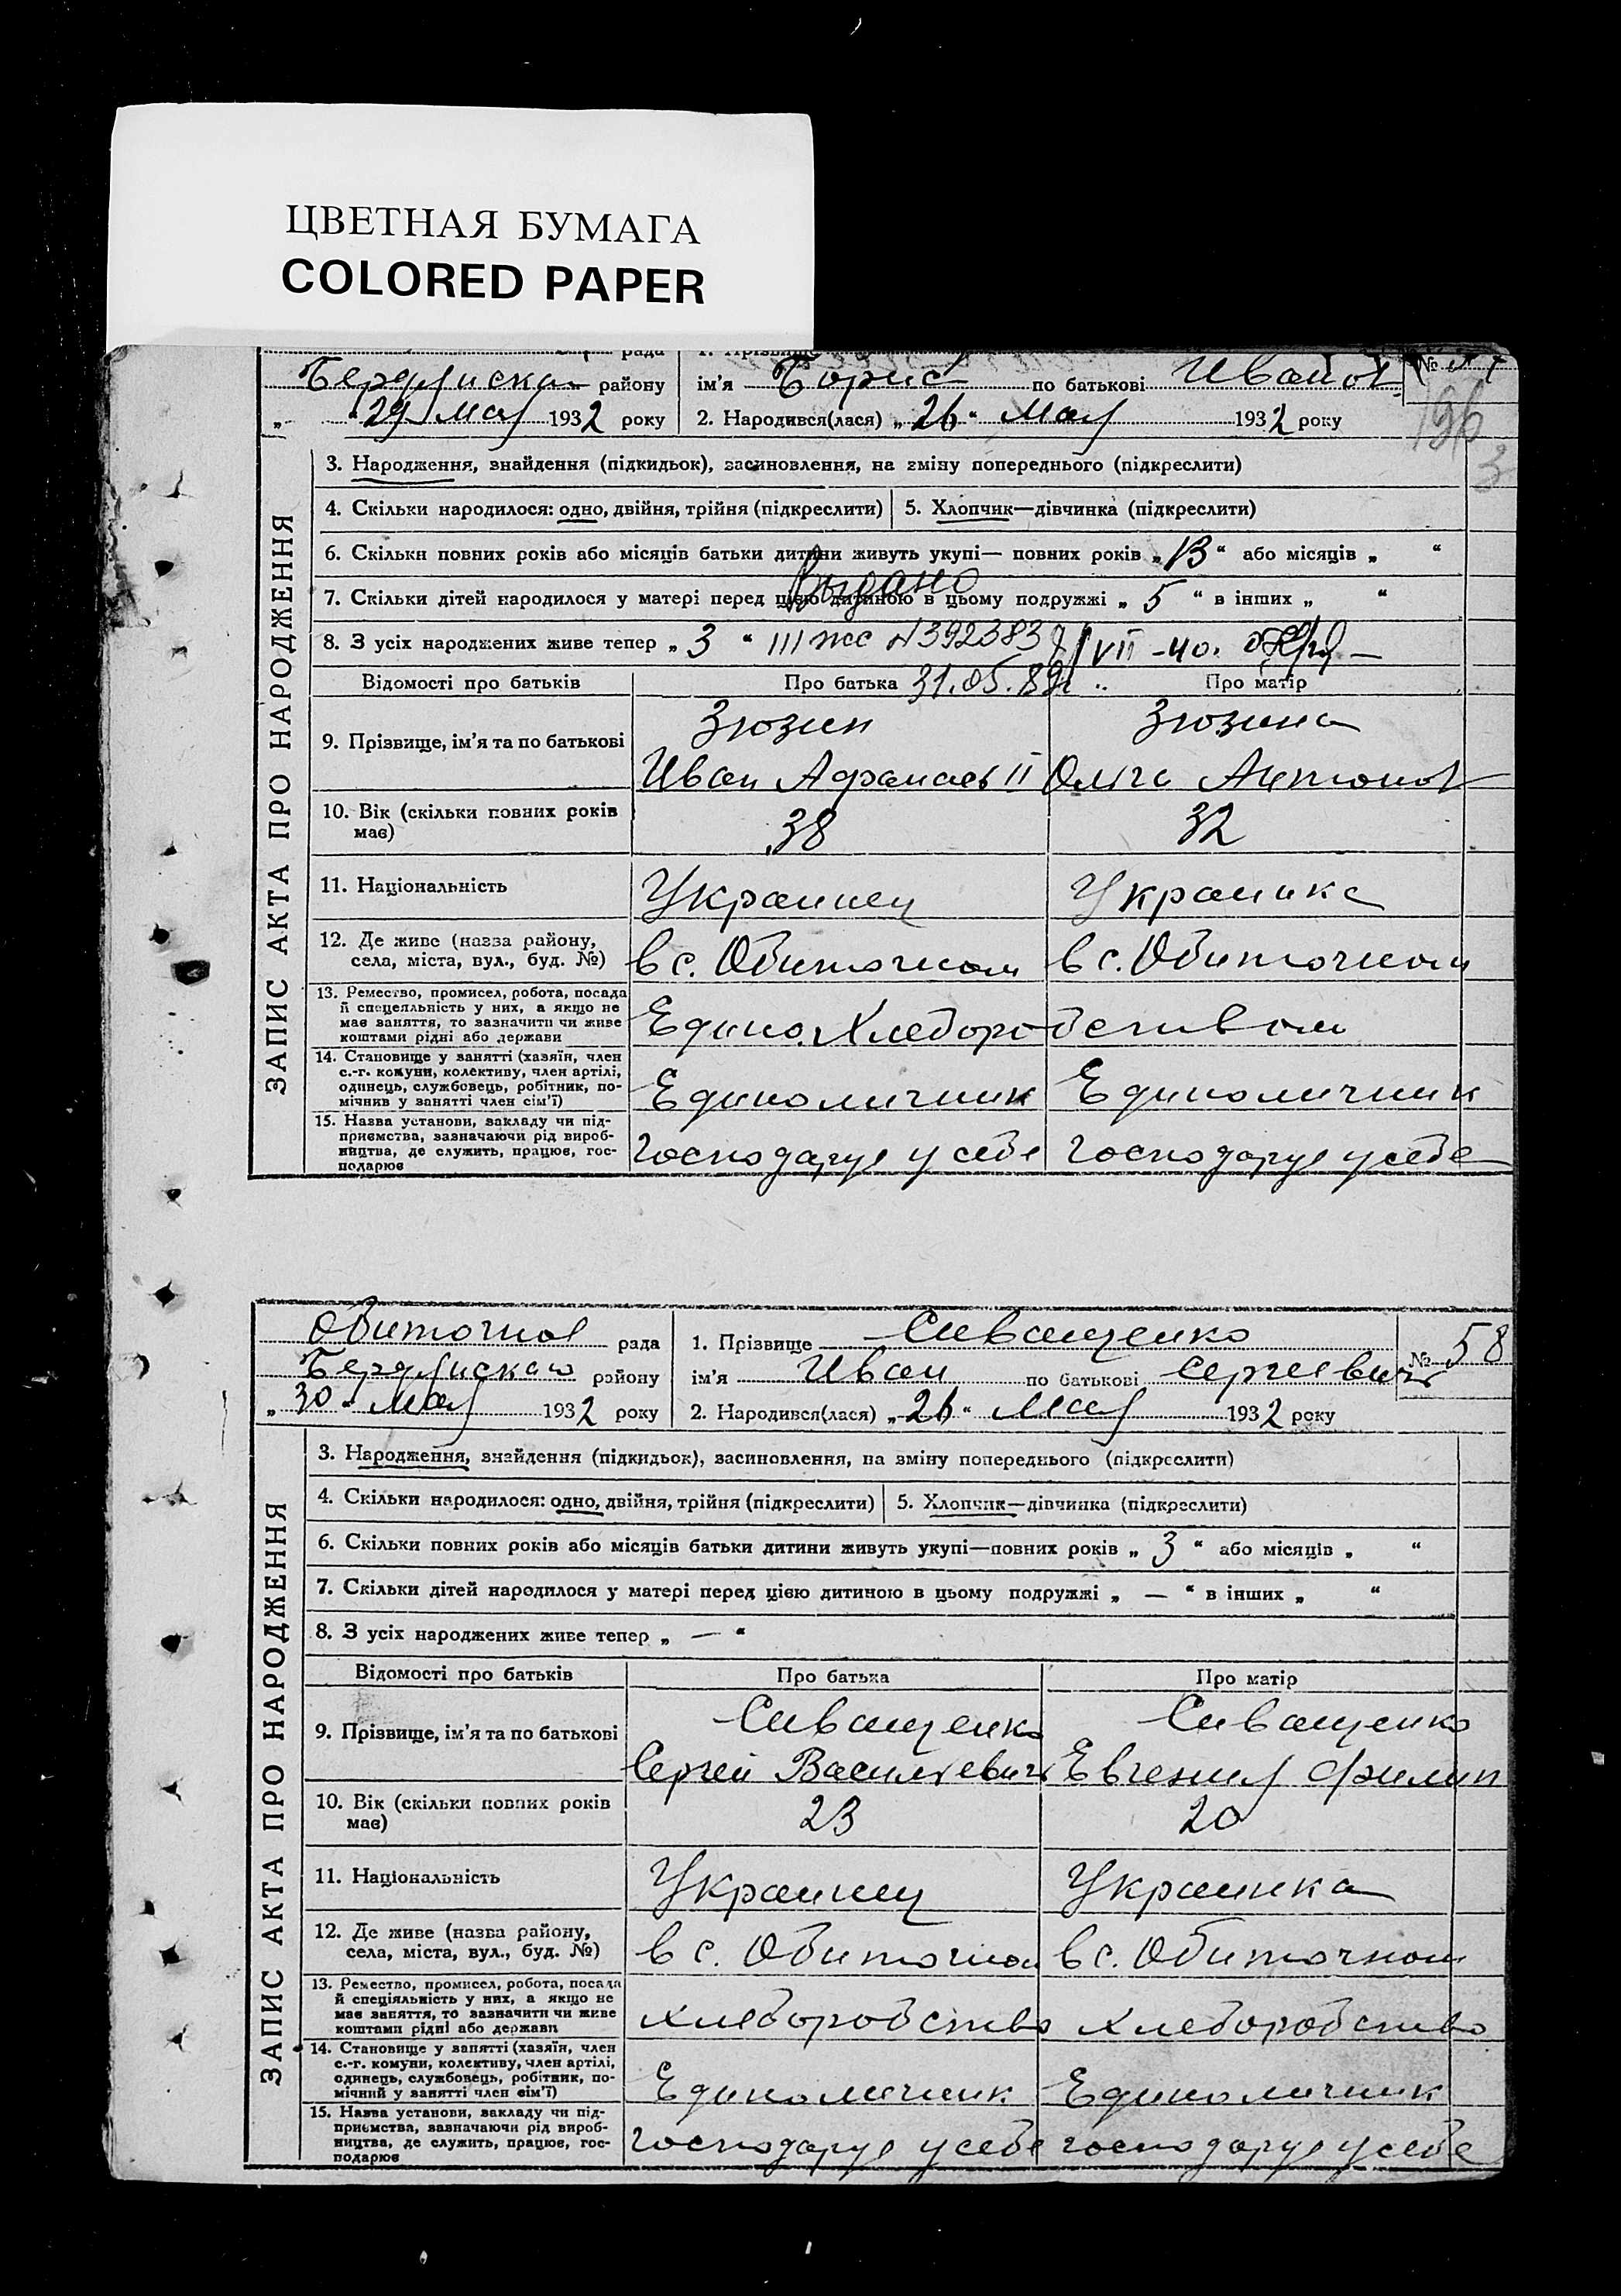 ЦВЕТНАЯ БУМАГА
COLORED PAPER
рада 1. Прізвище
Бердянская району ім’я Борис по батькові Иванов №
„ 29 Мая 1932 року 2. Народився(лася) „ 26 “ Мая 1932 року
196
3
ЗАПИС АКТА ПРО НАРОДЖЕННЯ
3. Народження, знайдення (підкидьок), засиновлення, на зміну попереднього (підкреслити)
4. Скільки народилося: одно, двійня, трійня (підкреслити) 5. Хлопчик—дівчинка (підкреслити)
6. Скільки повних років або місяців батьки дитини живуть укупі— повних років „ 13 “ або місяців „ “
Выдано
7. Скільки дітей народилося у матері перед цією дитиною в цьому подружжі „ 5 “ в інших „ “
8. З усіх народжених живе тепер „ 3 “ III жс N392383 VII -40.
Відомості про батьків Про батька 31.05.89 Про матір
Зюзин Зюзина
9. Прізвище, ім’я та по батькові
Иван Афанасьев II Ольга Антонов
10. Вік (скільки повних років
має) 38 32
11. Національність Украинец Украинка
12. Де живе (назва району,
села, міста, вул., буд. №) в с. Обиточном в с. Обиточном
13. Ремество, промисел, робота, посада
й спецеяльність у них, а якщо не
має заняття, то зазначити чи живе
коштами рідні або держави
Едино. Хлеборобством
14. Становище у занятті (хазяїн, член
с.-г. комуни, колективу, член артілі,
одинець, службовець, робітник, по-
мічнив у занятті член сім’ї)
Единоличник Единоличник
15. Назва установи, закладу чи під-
приємства, зазначаючи рід вироб-
ництва, де служить, працює, гос-
подарює
Господарує у себе господарує у себе
Обиточной рада 1. Прізвище Сиващенко № 58
Бердянскаго району ім’я Иван по батькові Сергеевич
„ 30 “ Мая 1932 року 2. Народився(лася) „ 26 “ Мая 1932 року
ЗАПИС АКТА ПРО НАРОДЖЕННЯ
3. Народження, знайдення (підкидьок), засиновлення, на зміну попереднього (підкреслити)
4. Скільки народилося: одно, двійня, трійня (підкреслити) 5. Хлопчик—дівчинка (підкреслити)
6. Скільки повних років або місяців батьки дитини живуть укупі—повних років „ 3 “ або місяців „ “
7. Скільки дітей народилося у матері перед цією дитиною в цьому подружжі „ — “ в інших „ “
8. З усіх народжених живе тепер „ — “
Відомості про батьків Про батька Про матір
Сиващенко Сиващенко
9. Прізвище, ім’я та по батькові
Сергей Васильевич Евгения Филип
10. Вік (скільки повних років
має) 23 20
11. Національність Украинец Украинка
12. Де живе (назва району,
села, міста, вул., буд. №) в с. Обиточном в с. Обиточном
13. Ремество, промисел, робота, посада
й спеціяльність у них, а якщо не
має заняття, то зазначити чи живе
коштами рідні або держави
хлеборобство хлеборобство
14. Становище у занятті (хазяїн, член
с.-г. комуни, колективу, член артілі,
одинець, службовець, робітник, по-
мічний у занятті член сім’ї)
Единоличник Единоличник
15. Назва установи, закладу чи під-
приємства, зазначаючи рід вироб-
ництва, де служить, працює, гос-
подарює
Господарує у себе господарує у себе